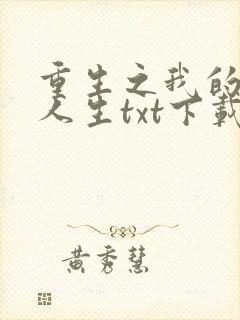 重生之我的
人生txt下载
黄秀慧